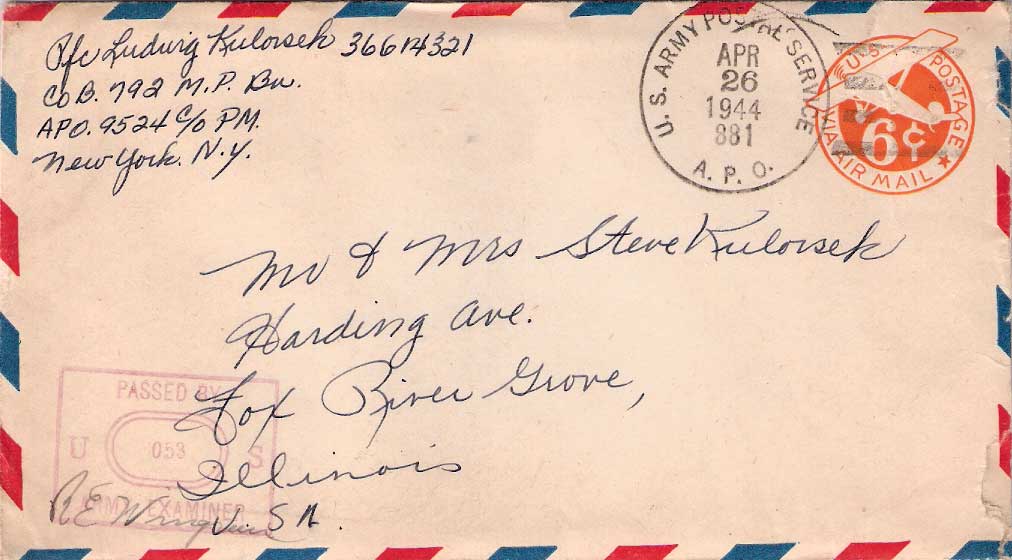 Pfc Ludwig Kulovsek 36614321
Co B. 792 M.P. Bn.
APO. 9524 c/o PM.
New York. N.Y.
U. S. ARMY POSTAL SERVICE
APR
26
1944
881
A. P. O.
U S POSTAGE
6¢
VIA AIR MAIL
Mr & Mrs Steve Kulovsek
Harding Ave.
Fox River Grove,
Illinois
PASSED BY
U 053 S
ARMY EXAMINER
R E